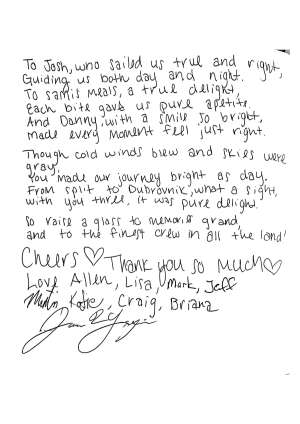 To Josh, who sailed us true and right,
Guiding us both day and night.
To sam's meals, a true delight,
Each bite gave us pure apetite.
And Danny, with a smile so bright,
made every moment feel just right.
Though cold winds blew and skies were
gray,
You made our journey bright as day.
From split to Dubrovnik, what a sight,
with you three, it was pure delight.
So raise a glass to memories grand,
and to the finest crew in all the land!
Cheers♡ Thank you so much♡
Love Allen, Lisa, Mark, Jeff
Katie, Craig, Briana